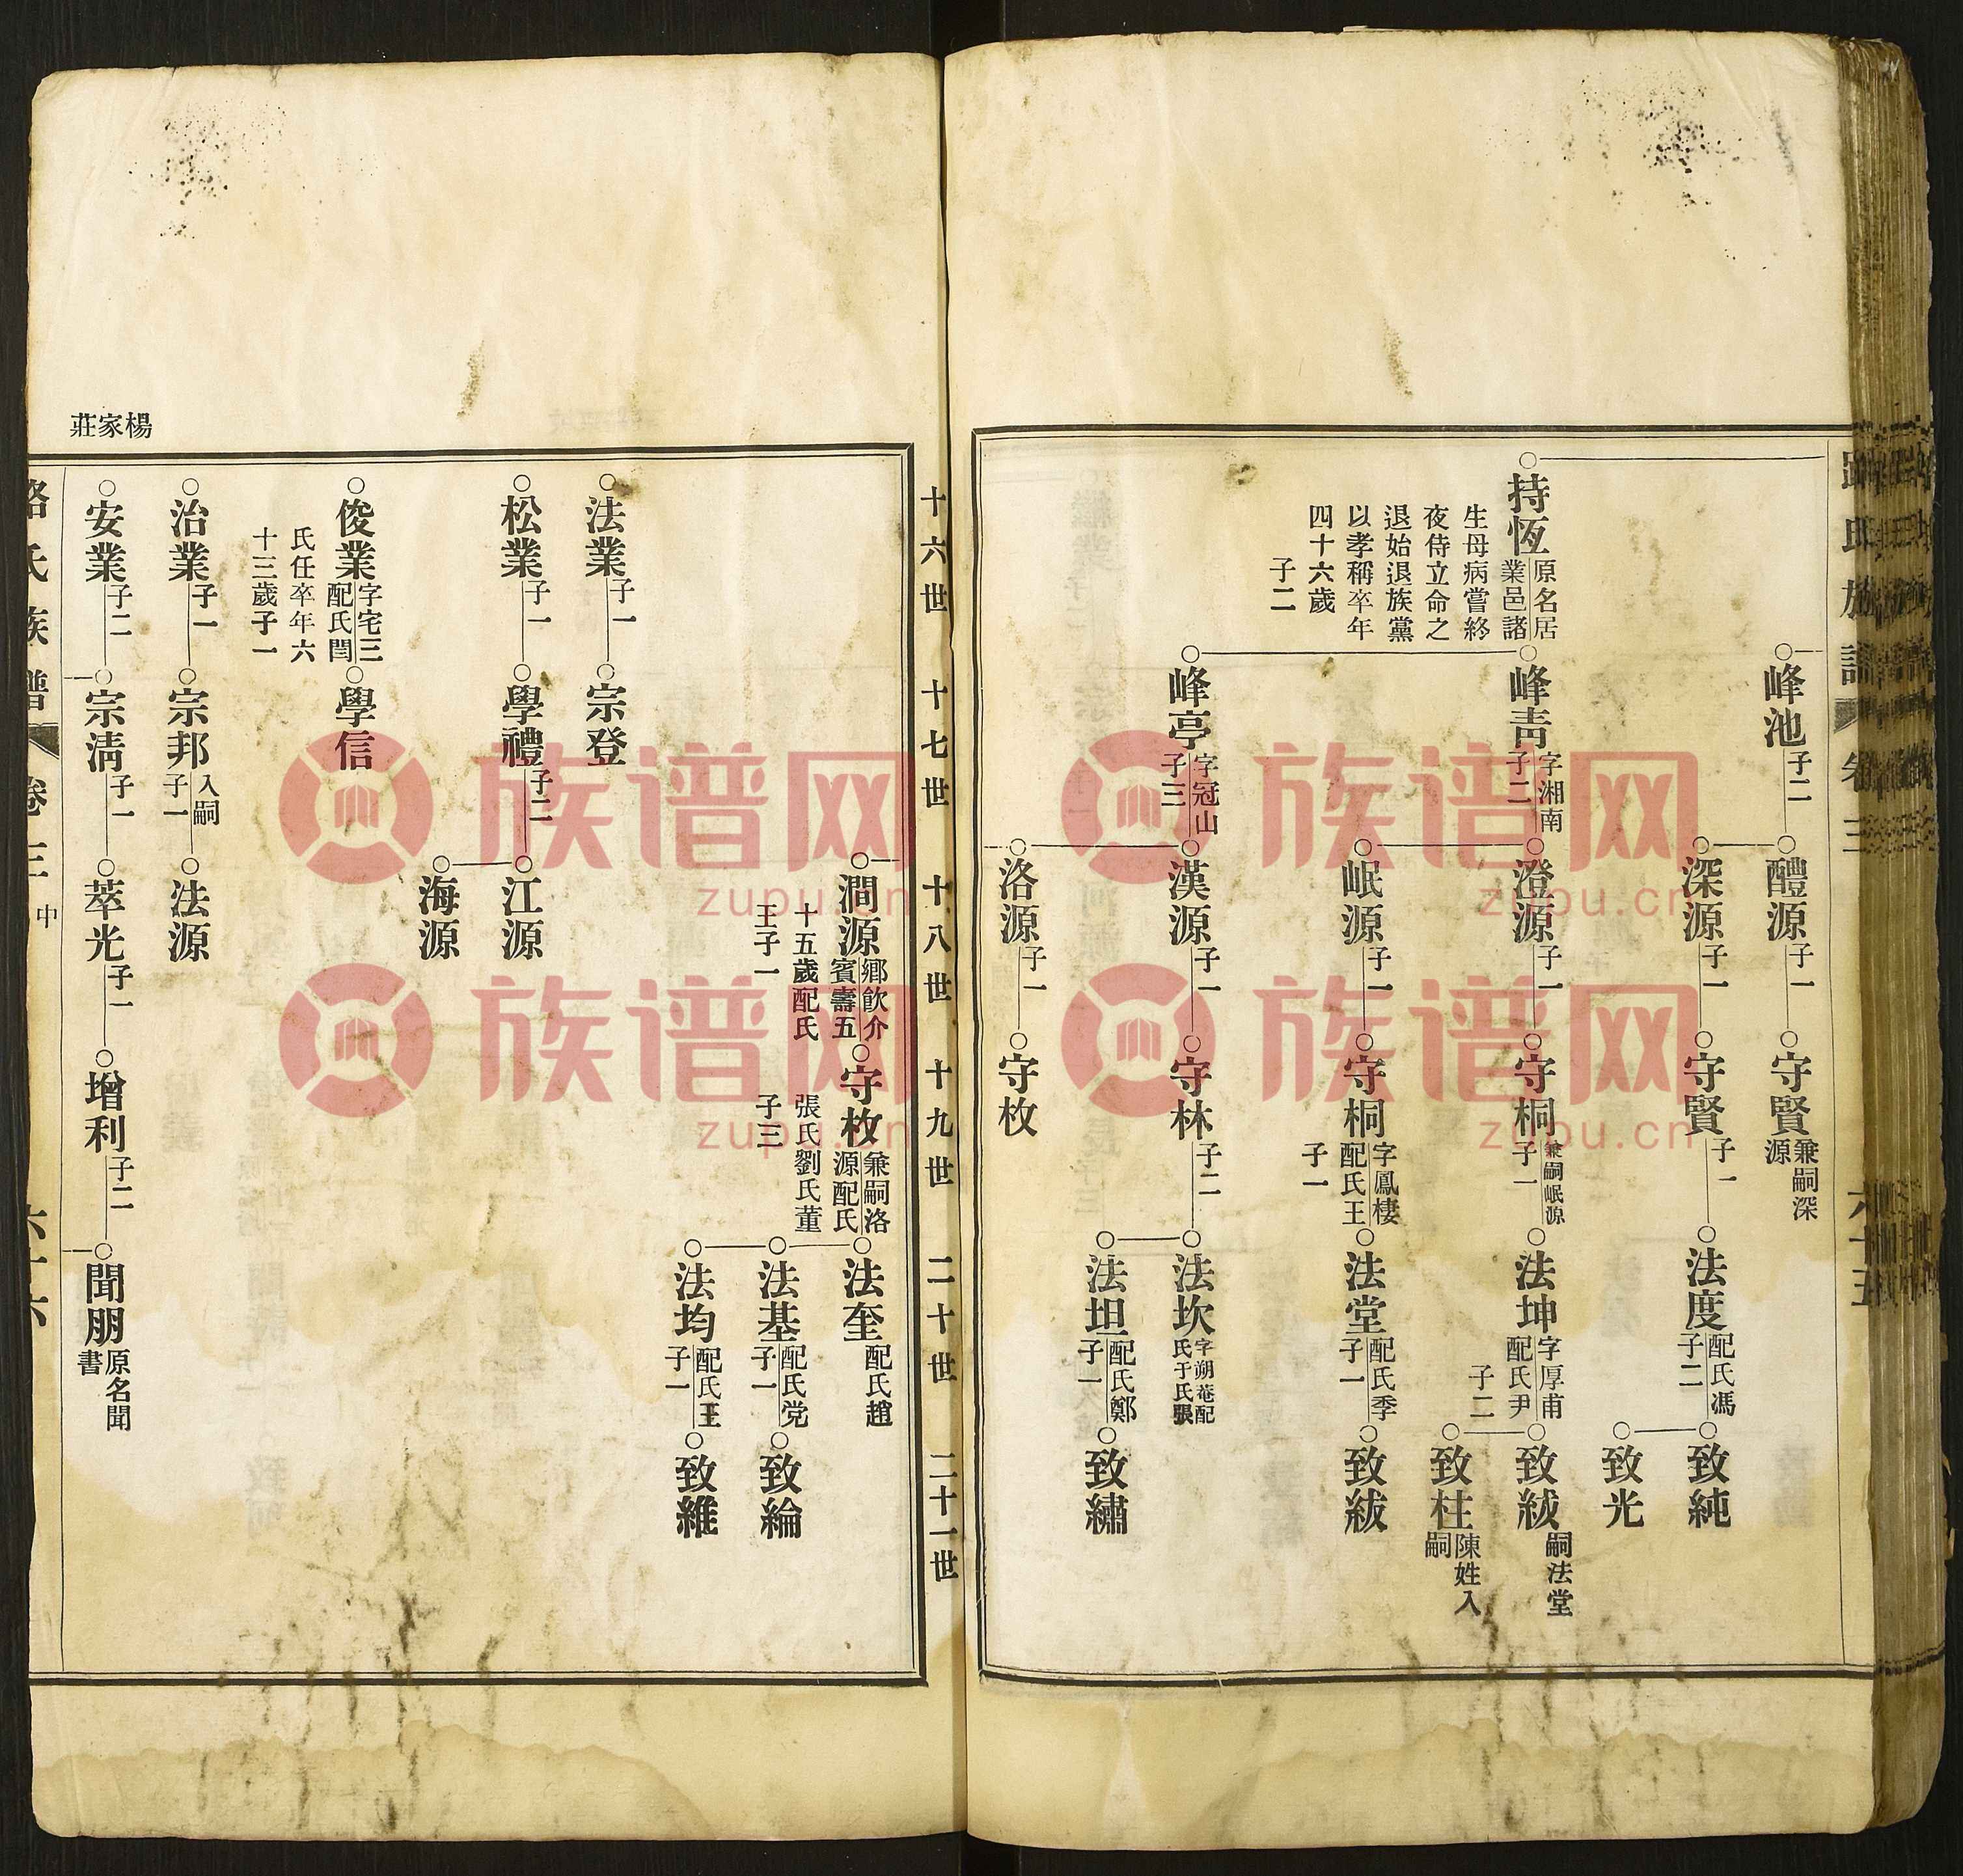 峰池 子二
醴源 子一
守賢 兼嗣深源
深源 子一
守賢 子一
法度 配氏馮 子二
致純
致光
持恆 原名居業邑諸生母病嘗終夜侍立命之退始退族黨以孝稱卒年四十六歲 子二
峰靑 字湘南 子二
澄源 子一
守桐 兼嗣岷源 子一
法坤 字厚甫 配氏尹 子二
致紱 嗣法堂
致柱 陳姓入嗣
岷源 子一
守桐 字鳳棲 配氏王 子一
法堂 配氏季 子一
致紱
峰亭 字冠山 子三
漢源 子一
守林 子二
法坎 字朔菴配氏于氏張
法坦 配氏鄭 子一
致繡
洛源 子一
守枚
氏族譜 卷三 六十五
十六世 十七世 十八世 十九世 二十世 二十一世
澗源 鄉飲介賓壽五十五歲配氏王子一
守枚 兼嗣洛源配氏張氏劉氏董 子三
法奎 配氏趙
法基 配氏党 子一
致綸
法均 配氏王 子一
致維
法業 子一
宗登
松業 子一
學禮 子二
江源
海源
俊業 字宅三 配氏閆氏任卒年六十三歲子一
學信
治業 子一
宗邦 入嗣 子一
法源
安業 子二
宗淸 子一
萃光 子一
增利 子二
聞朋 原名聞書
楊家莊
路氏族譜 卷三 中 六十六
族谱网
zupu.cn
族谱网
zupu.cn
族谱网
zupu.cn
族谱网
zupu.cn